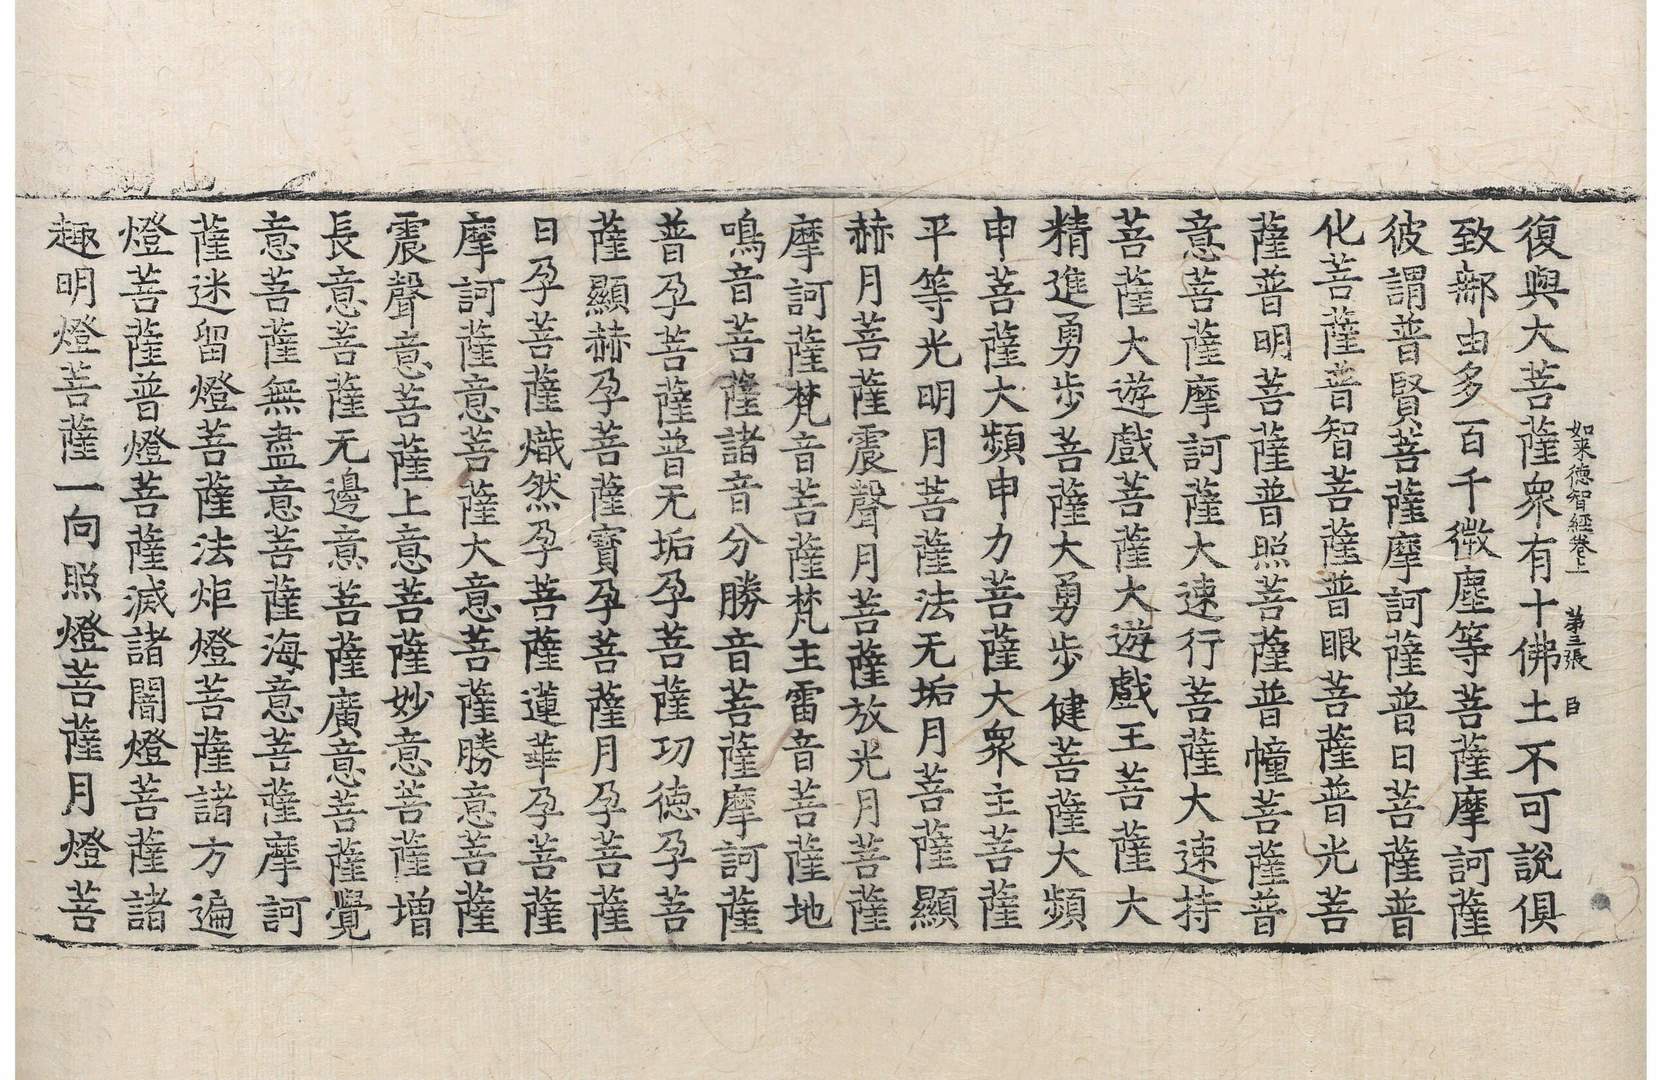 如来德智經卷上 第三張 目
復與大菩薩衆有十佛土不可說俱
致𨚗由多百千微塵等菩薩摩訶薩
彼謂普賢菩薩摩訶薩普日菩薩普
化菩薩普智菩薩普眼菩薩普光菩
薩普明菩薩普照菩薩普幢菩薩普
意菩薩摩訶薩大速行菩薩大速持
菩薩大遊戲菩薩大遊戲王菩薩大
精進勇步菩薩大勇步健菩薩大頻
申菩薩大頻申力菩薩大衆主菩薩
平等光明月菩薩法无垢月菩薩顯
赫月菩薩震聲月菩薩放光月菩薩
摩訶薩梵音菩薩梵主雷音菩薩地
鳴音菩薩諸音分勝音菩薩摩訶薩
普孕菩薩普无垢孕菩薩功德孕菩
薩顯赫孕菩薩寶孕菩薩月孕菩薩
日孕菩薩熾然孕菩薩蓮華孕菩薩
摩訶薩意菩薩大意菩薩勝意菩薩
震聲意菩薩上意菩薩妙意菩薩增
長意菩薩无邊意菩薩廣意菩薩覺
意菩薩無盡意菩薩海意菩薩摩訶
薩迷留燈菩薩法炬燈菩薩諸方遍
燈菩薩普燈菩薩滅諸闇燈菩薩諸
趣明燈菩薩一向照燈菩薩月燈菩